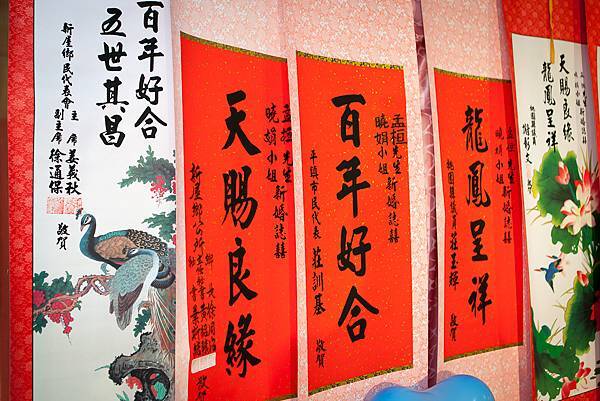 百年好合
五世其昌
新屋鄉民代表會
主席 姜義秋
副主席 徐通保
敬賀
孟桓先生
曉娟小姐
新婚誌囍
天賜良緣
新屋鄉公所
敬賀
孟桓先生
曉娟小姐
新婚誌囍
百年好合
平鎮市民代表 莊訓基 敬賀
孟桓先生
曉娟小姐
新婚誌囍
龍鳳呈祥
桃園縣議員 莊玉輝 敬賀
新婚誌囍
天賜良緣
龍鳳呈祥
桃園縣議員
敬賀